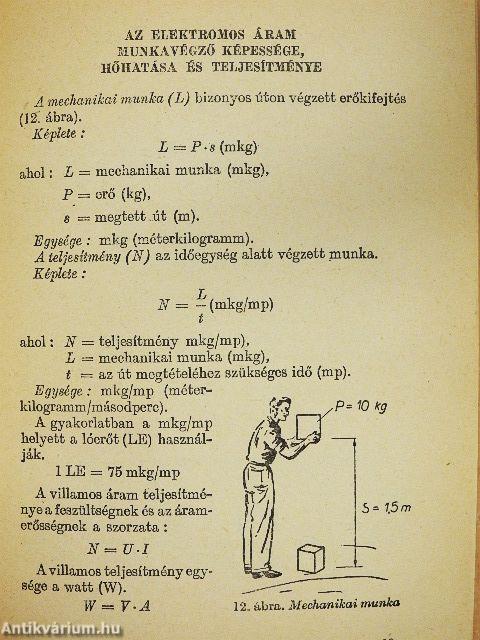 AZ ELEKTROMOS ÁRAM
MUNKAVÉGZŐ KÉPESSÉGE,
HŐHATÁSA ÉS TELJESÍTMÉNYE
A mechanikai munka (L) bizonyos úton végzett erőkifejtés
(12. ábra).
Képlete :
L = P·s (mkg)
ahol : L = mechanikai munka (mkg),
P = erő (kg),
s = megtett út (m).
Egysége : mkg (méterkilogramm).
A teljesítmény (N) az időegység alatt végzett munka.
Képlete :
N = L/t (mkg/mp)
ahol : N = teljesítmény mkg/mp),
L = mechanikai munka (mkg),
t = az út megtételéhez szükséges idő (mp).
Egysége : mkg/mp (méter-
kilogramm/másodperc).
A gyakorlatban a mkg/mp
helyett a lóerőt (LE) használ-
ják.
1 LE = 75 mkg/mp
A villamos áram teljesítmé-
nye a feszültségnek és az áram-
erősségnek a szorzata :
N = U·I
A villamos teljesítmény egy-
sége a watt (W).
W = V·A
P = 10 kg
S = 1,5 m
12. ábra. Mechanikai munka
Antikvárium.hu